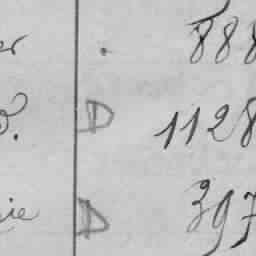 er . 888
D 1128
ie D 397